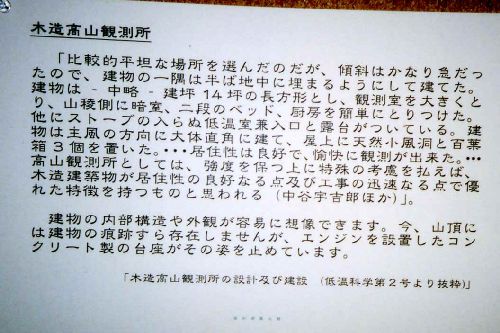 木造高山観測所
「比較的平坦な場所を選んだのだが、傾斜はかなり急だっ
たので、建物の一隅は半ば地中に埋まるようにして建てた。
建物は - 中略 - 建坪14坪の長方形とし、観測室を大きくと
り、山稜側に暗室、二段のベッド、厨房を簡単にとりつけた。
他にストーブの入らぬ低温室兼入口と露台がついている。建
物は主風の方向に大体直角に建て、屋上に天然小風洞と百葉
箱3個を置いた。・・・居住性は良好で、愉快に観測が出来た。・・・
高山観測所としては、強度を保つ上に特殊の考慮を払えば、
木造建築物が居住性の良好なる点及び工事の迅速なる点で優
れた特徴を持つものと思われる（中谷宇吉郎ほか）」。
建物の内部構造や外観が容易に想像できます。今、山頂に
は建物の痕跡すら存在しませんが、エンジンを設置したコン
クリート製の台座がその姿を止めています。
「木造高山観測所の設計及び建設 （低温科学第2号より抜粋）」